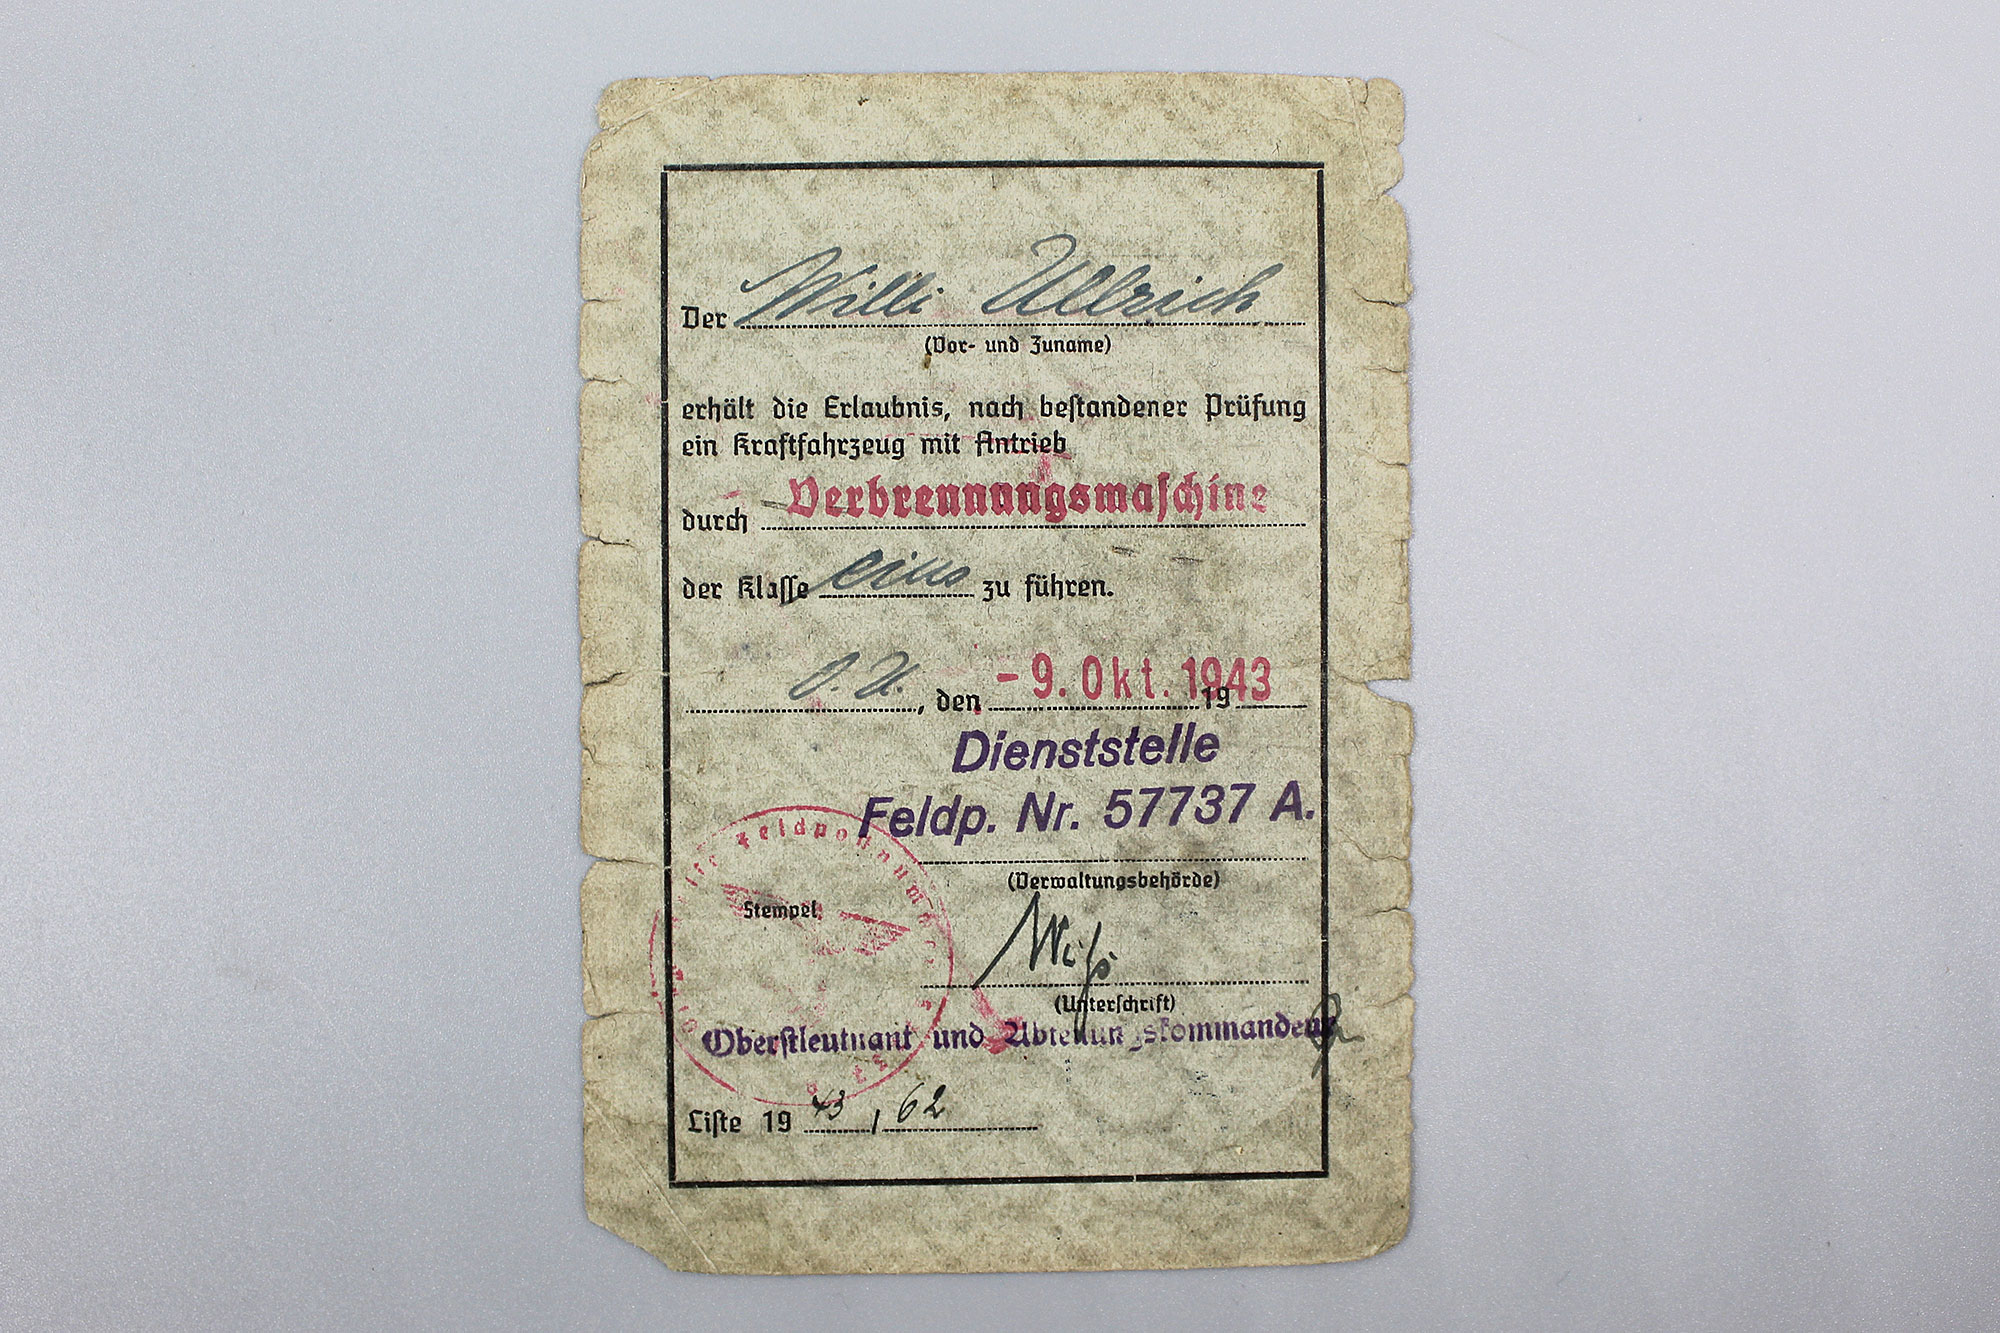 Der Willi Ullrich
(Vor- und Zuname)
erhält die Erlaubnis, nach bestandener Prüfung
ein Kraftfahrzeug mit Antrieb
durch Verbrennungsmaschine
der Klasse eins zu führen.
O.U., den -9. Okt. 1943 19
Dienststelle
Feldp. Nr. 57737 A.
(Verwaltungsbehörde)
Feldpostnummer
Stempel
(Unterschrift)
Oberstleutnant und Abteilungskommandeur
Liste 19 43 / 62